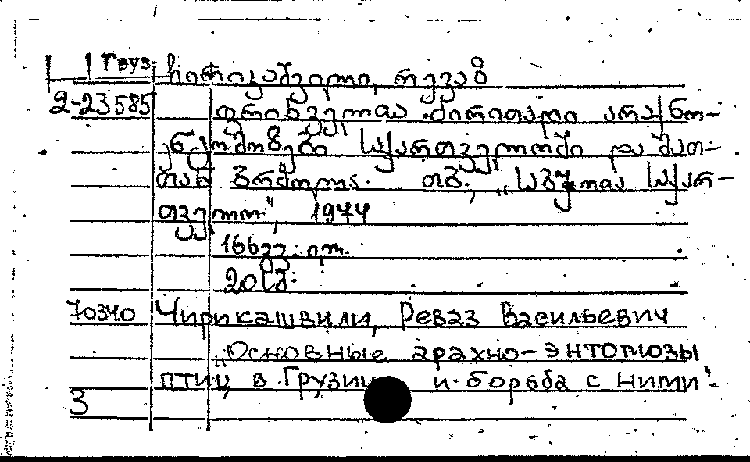 Груз. ჩირიკაშვილი, რევაზ
2-23585 ფრინველთა ძირითადი არაქნო-
ენტომოზები საქართველოში და მათ-
თან ბრძოლა. თბ., „საბჭოთა საქარ-
თველო", 1974
166გვ. ილ.
20სმ.
70340 Чирикашвили, Реваз Васильевич
„Основные арахно-энтомозы
птиц в Грузии и борьба с ними".
3